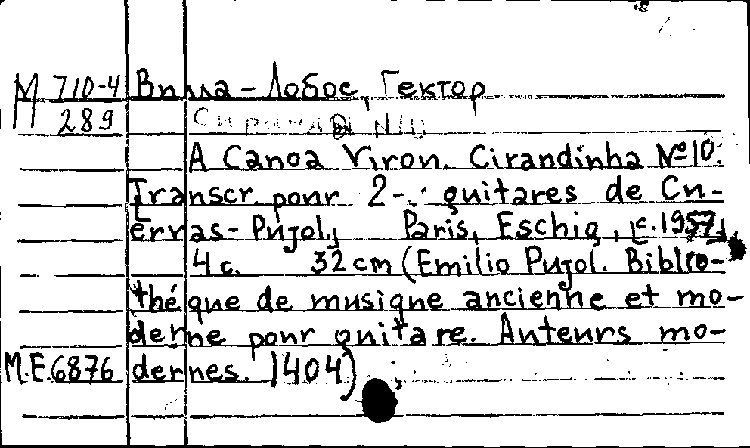 М 710-4 Вилла-Лобос, Гектор
289
A Canoa Viron. Cirandinha №10.
Transcr. pour 2-. guitares de Cu-
ervas-Pujol, Paris, Eschig, c.1957,
4 с. 32 cm (Emilio Pujol. Biblio-
théque de musique ancienne et mo-
derne pour guitare. Auteurs mo-
М.Е.6876 dernes. 1404)